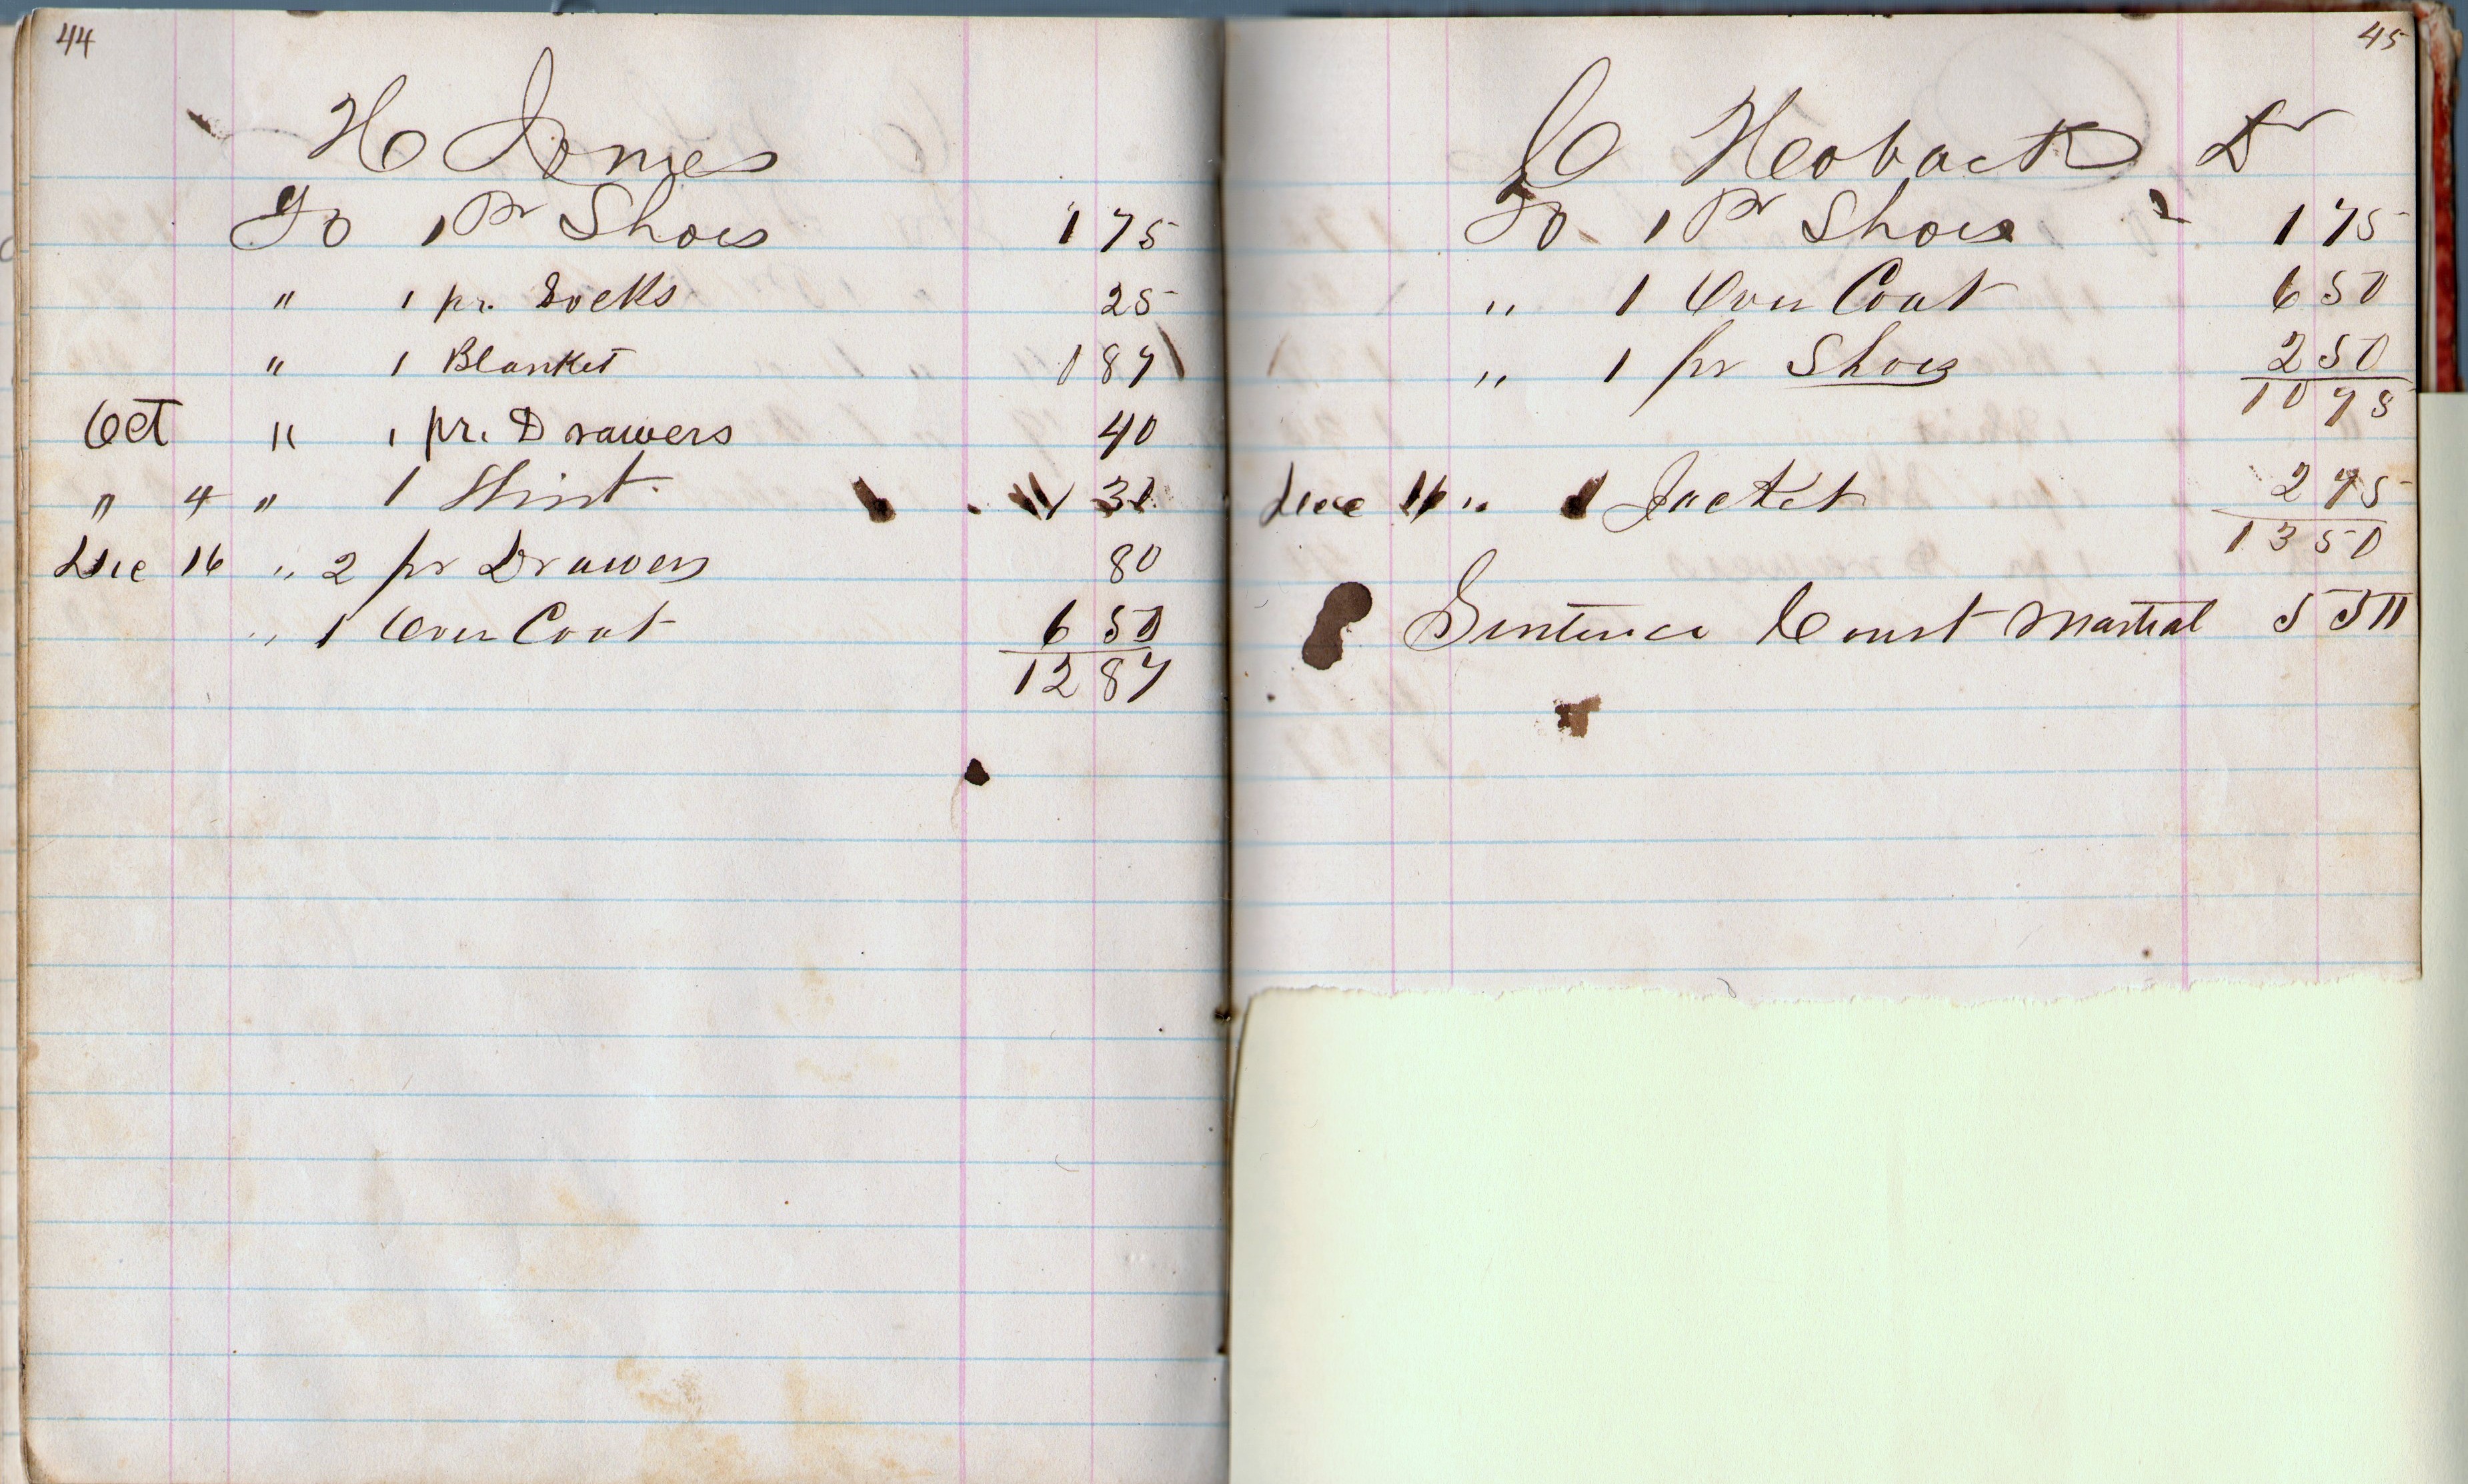 44
H Jones
To 1 Pr Shoes 1 75
" 1 pr. Socks 25
" 1 Blanket 1 87
Oct " 1 pr. Drawers 40
" 4 " 1 Shirt 1 30
Dec 16 " 2 pr Drawers 80
" 1 Over Coat 6 50
12 87
45
C Hoback Dr
To 1 Pr Shoes 1 75
" 1 Over Coat 6 50
" 1 pr Shoes 2 50
10 75
Dec 16 " 1 Jacket 2 75
13 50
Sentence Court Martial 5 50